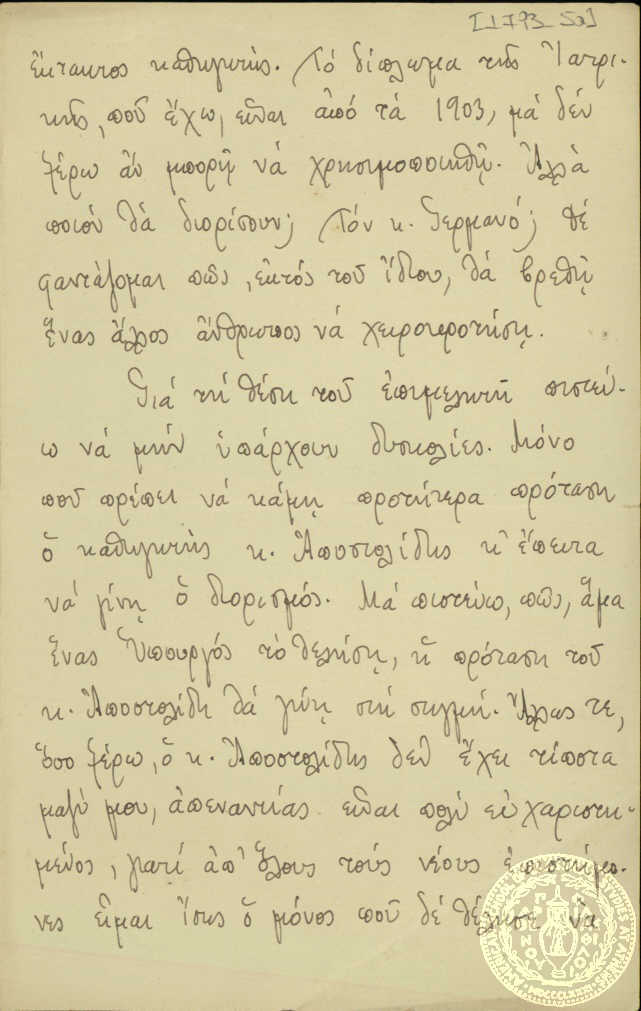 [1793_5α]
ἔκτακτος καθηγητής. Τό δίπλωμα τῆς Ἰατρι-
κῆς, ποῦ ἔχω, εἶναι ἀπό τά 1903, μά δέν
ξέρω ἄν μπορῇ νά χρησιμοποιηθῇ. Ἀλλά
ποιόν θά διορίσουν; Τόν κ. Γερμανό; Θέ
φαντάζομαι πῶς, ἐκτός τοῦ ἴδιου, θά βρεθῇ
ἕνας ἄλλος ἄνθρωπος νά χειροκροτήσῃ.
Γιά τή θέση τοῦ ἐπιμελητῆ πιστεύ-
ω νά μήν ὑπάρχουν δυσκολίες. Μόνο
ποῦ πρέπει νά κάμῃ πρωτήτερα πρόταση
ὁ καθηγητής κ. Ἀποστολίδης κ' ἔπειτα
νά γίνῃ ὁ διορισμός. Μά πιστεύω, πῶς, ἅμα
ἕνας Ὑπουργός τό θελήσῃ, ἡ πρόταση τοῦ
κ. Ἀποστολίδη θά γίνῃ στή στιγμή. Ἄλλως τε,
ὅσο ξέρω, ὁ κ. Ἀποστολίδης δέν ἔχει τίποτα
μαζί μου, ἀπεναντίας εἶναι πολύ εὐχαριστη-
μένος, γιατί ἀπ' ὅλους τούς νέους ἐπιστήμο-
νες εἶμαι ἴσως ὁ μόνος ποῦ δέ θέλησε νά